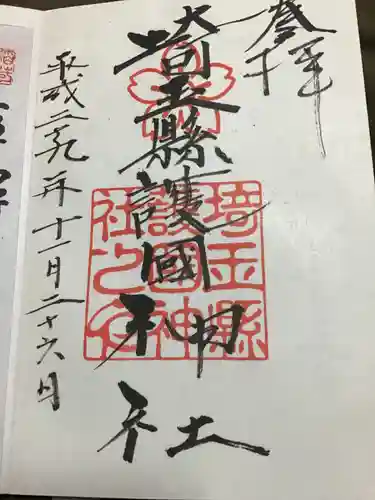 登拝
埼玉縣護國神社
平成二十九年十一月二十六日
埼玉縣
護國神
社之印